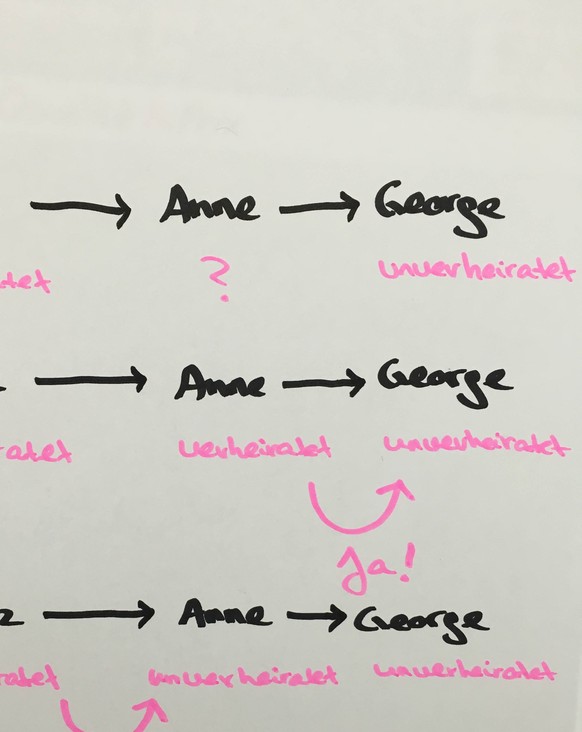 → Anne → George
? unverheiratet
→ Anne → George
verheiratet unverheiratet
Ja!
→ Anne → George
unverheiratet unverheiratet